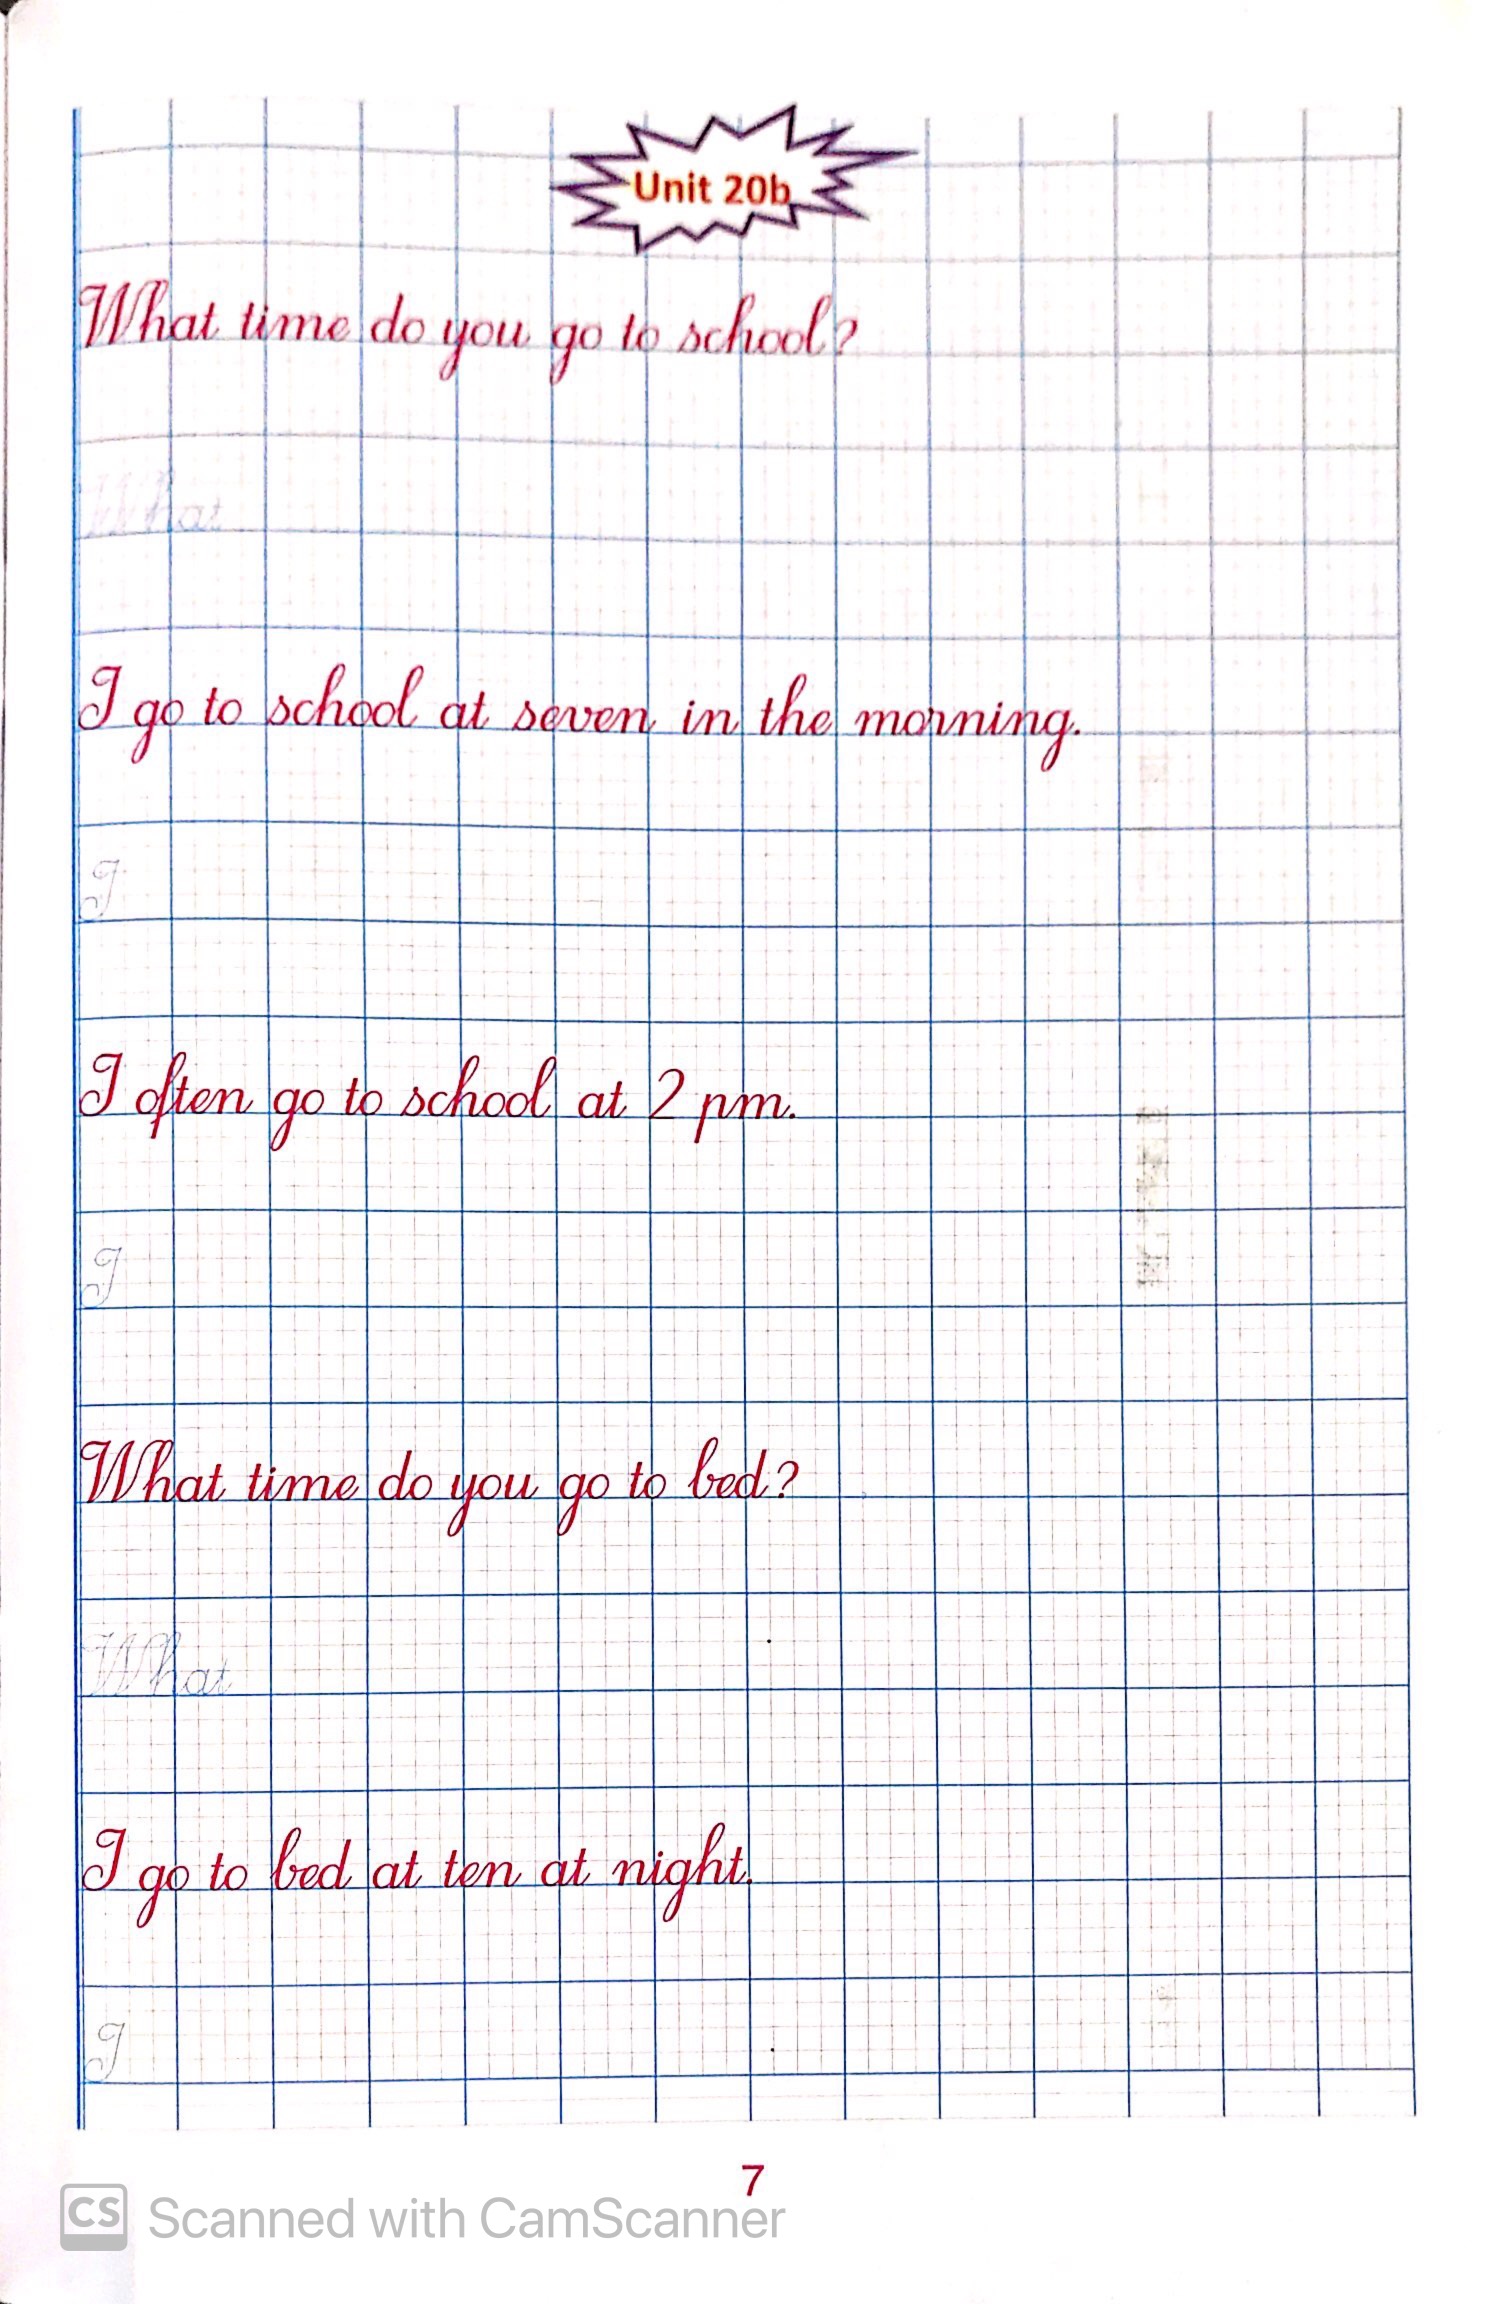 Unit 20b
What time do you go to school?
What
I go to school at seven in the morning.
I
I often go to school at 2 pm.
I
What time do you go to bed?
What
I go to bed at ten at night.
I
7
CS Scanned with CamScanner